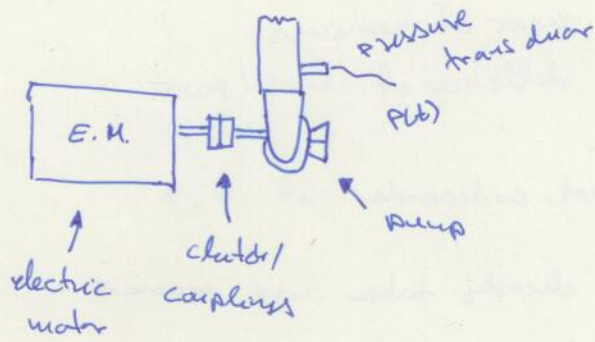 pressure
transducer
P(t)
E.M.
pump
clutch/
couplings
electric
motor